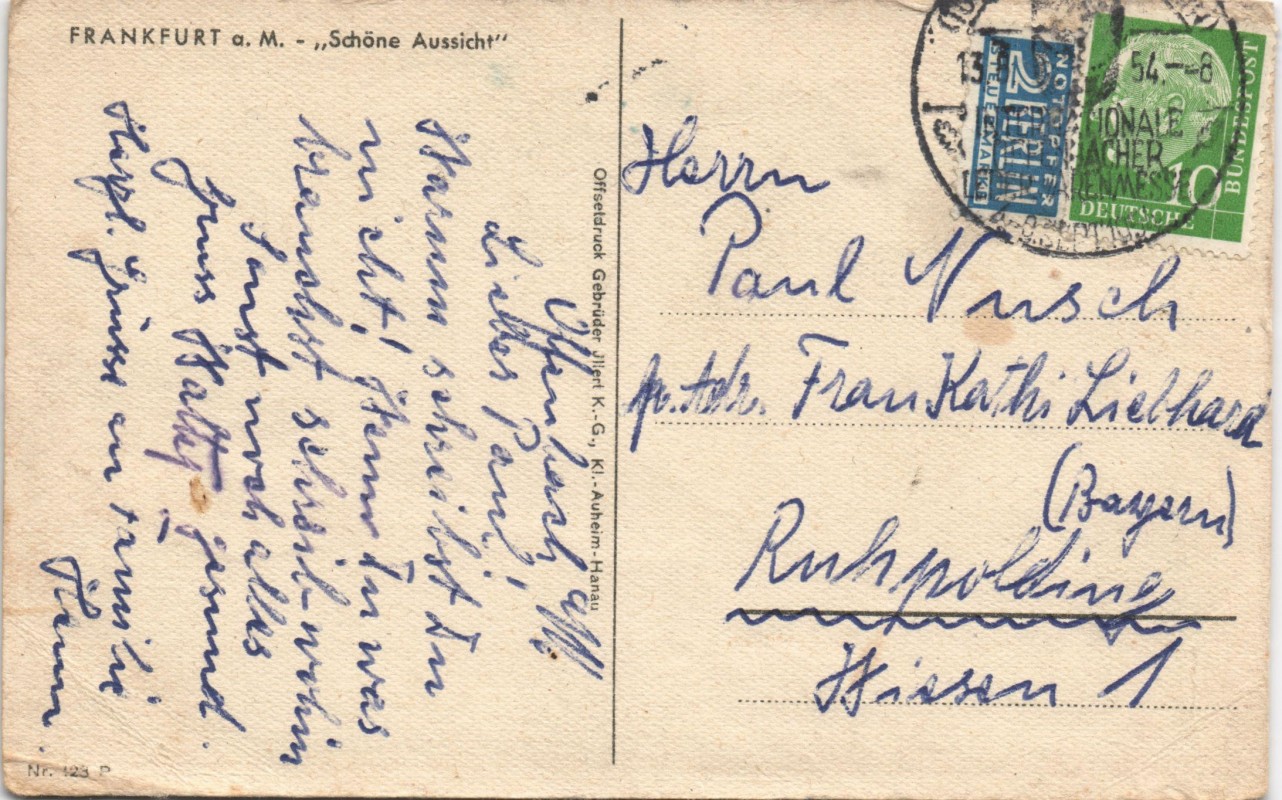 FRANKFURT a. M. - „Schöne Aussicht"
Offenbach a/M.
Lieber Paul,
Warum schreibst Du
nicht, Wenn Du was
brauchst schreib-wohin
Sonst noch alles
gesund.
Gruss
Herzl. Grüsse an Familie
Offsetdruck Gebrüder Jllert K.-G., Kl.-Auheim-Hanau
Nr. 123 P
NOTOPFER
2 BERLIN
STEUERMARKE
10
DEUTSCHE
BUNDESPOST
13.
54.--8
OFFENBACHER
LEDERWARENMESSE
Herrn
Paul Nusch
p. Adr. Frau Kathi Liebhard
(Bayern)
Ruhpolding
Wiesen 1